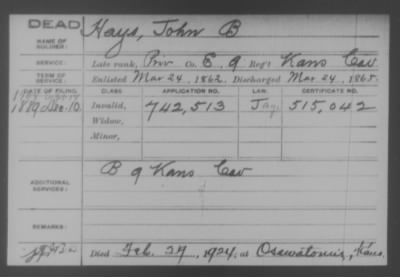 DEAD
NAME OF SOLDIER: Hays, John B
SERVICE: Late rank, Priv Co. E, 9 Reg't Kans Cav
TERM OF SERVICE: Enlisted Mar 24, 1862. Discharged Mar 24, 1865.
DATE OF FILING. CLASS. APPLICATION NO. LAW. CERTIFICATE NO.
1889 Dec. 10. Invalid, 742,513 515,042
Widow,
Minor,
ADDITIONAL SERVICES: B 9 Kans Cav
REMARKS:
Died Feb. 27, 1924, at Osawatomie, Kans.